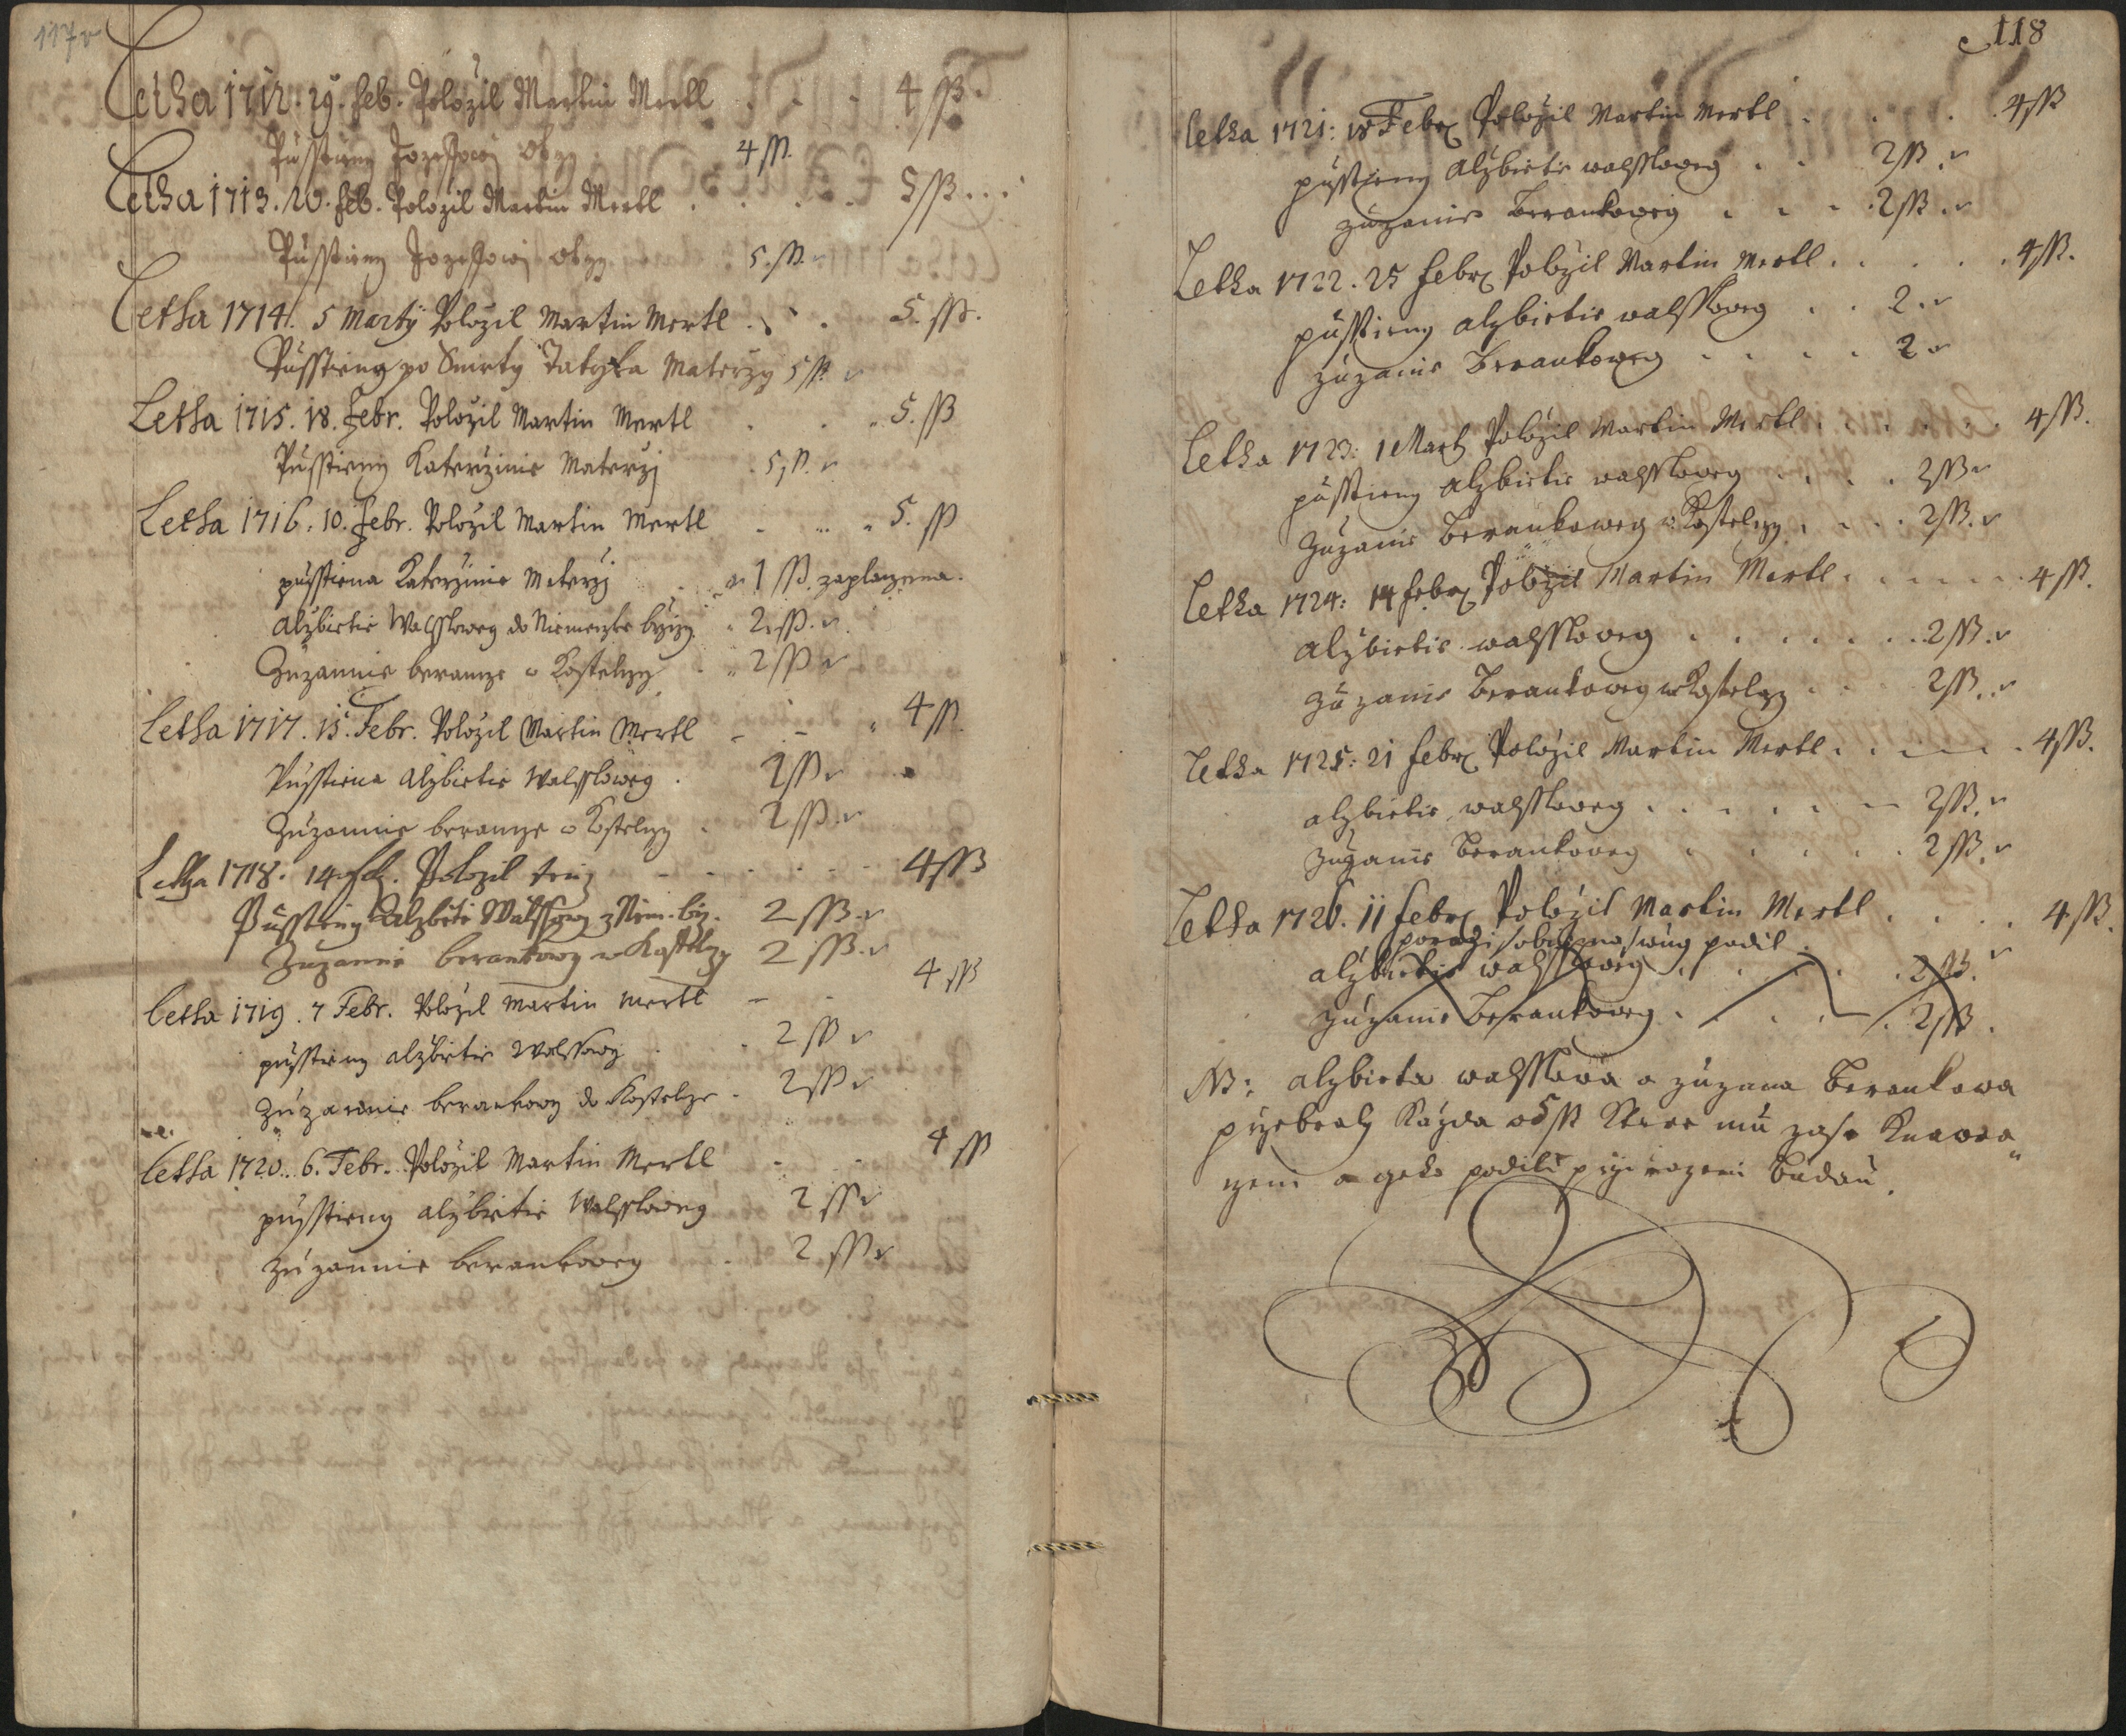 117v
Letha 1712. 29. feb. Polozil Martin Mertl . . . 4 sß.
Pusstieny Jozeffowj obzy 4 sß.
Letha 1713. 20. feb. Polozil Martin Mertl . . . . 5 sß...
Pusstieny Jozeffowj obzy 5. sß.
Letha 1714. 5 Marty Polozil Martin Mertl . . . 5. sß.
Pusstieny po Smrty Materzy 5 sß.
Letha 1715. 18. Febr. Polozil Martin Mertl . . . 5. sß
Pusstieny Katerzinie Materzj . 5 sß.
Letha 1716. 10. Febr. Polozil Martin Mertl . . . 5. sß
pusstiena Katerzinie Materzj 1 sß. zaplaczena.
Alzbietie Walssowey do Niemeczke . 2. sß.
Zuzannie beranze w Kostelczy . 2 sß
Letha 1717. 15. Febr. Polozil Martin Mertl - - . 4 sß
Pusstiena Alzbietie Walssowey . 2 sß
Zuzannie beranze w Kostelczy . 2 sß.
Letha 1718. 14. feb. Polozil teiz - - . . . . 4 sß
Pusstieny Alzbietie Walssowy z Niem. 2 sß.
Zuzannie berankowy w Kostelczy 2 sß.
Letha 1719. 7 Febr. Polozil Martin Mertl - - 4 sß
pusstieny alzbietie Walssowy . . 2 sß
Zuzannie berankowy do Kostelcze . 2 sß
Letha 1720. 6. Febr. Polozil Martin Mertl - - 4 sß
pusstieny alzbietie Walssowey 2 sß
Zuzannie berankowey . 2 sß
118
Letha 1721: 18 Febr Polozil Martin Mertl . . . . 4 sß
pusstieny Alzbietie walssowey . . 2 sß.
Zuzanie Berankoweg . . . 2 sß.
Letha 1722. 25 febr Polozil Martin Mertl . . . . 4 sß.
pusstieny alzbietie walssowey . . 2.
Zuzanie Berankowey . . . . 2
Letha 1723: 1 Marty Polozil Martin Mertl . . . . . 4 sß.
pusstieny alzbietie walssowey . . . . 2 sß
Zuzanie Berankowey w Kostelczy . . . . 2 sß.
Letha 1724: 14 febr Polozil Martin Mertl . . . . . 4 sß.
alzbietie walssowey . . . . . . 2 sß.
Zuzanie Berankowey w Kostelczy . . . 2 sß.
Letha 1725: 21 febr Polozil Martin Mertl . . . . . 4 sß.
alzbietie walssowey . . . . . - 2 sß.
Zuzanie Berankowey . . . . . 2 sß.
Letha 1726. 11 febr Polozil Martin Mertl . . . . 4 sß.
sobie na swug podil.
alzbietie walssowey . . . . . 2 sß.
Zuzanie Berankowey . . . . . 2 sß.
NB: alzbieta walssowa a zuzana Berankowa
przebraly Kazda o 5 sß Ktere mu zase
a geho podilu przirazeni Budau.